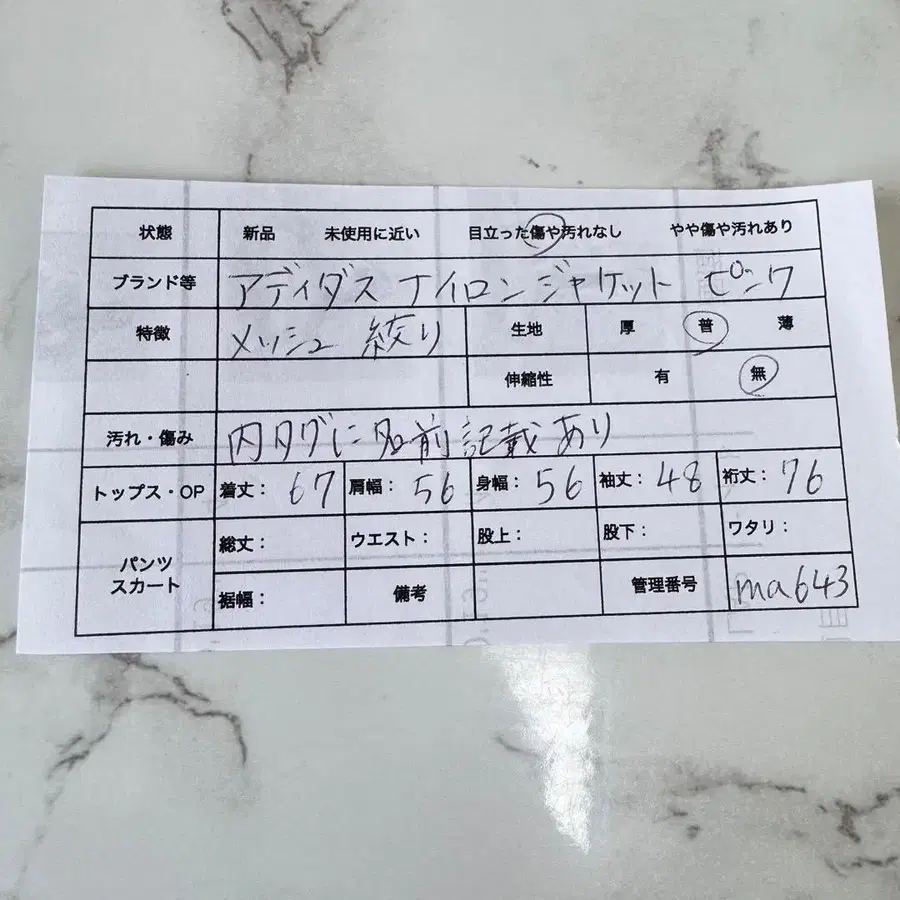 状態 新品 未使用に近い 目立った傷や汚れなし やや傷や汚れあり
ブランド等 アディダス ナイロンジャケット ピンク
特徴 メッシュ 絞り 生地 厚 普 薄
伸縮性 有 無
汚れ・傷み 内タグに名前記載あり
トップス・OP 着丈: 67 肩幅: 56 身幅: 56 袖丈: 48 裄丈: 76
パンツ スカート 総丈: ウエスト: 股上: 股下: ワタリ:
裾幅: 備考 管理番号 ma643